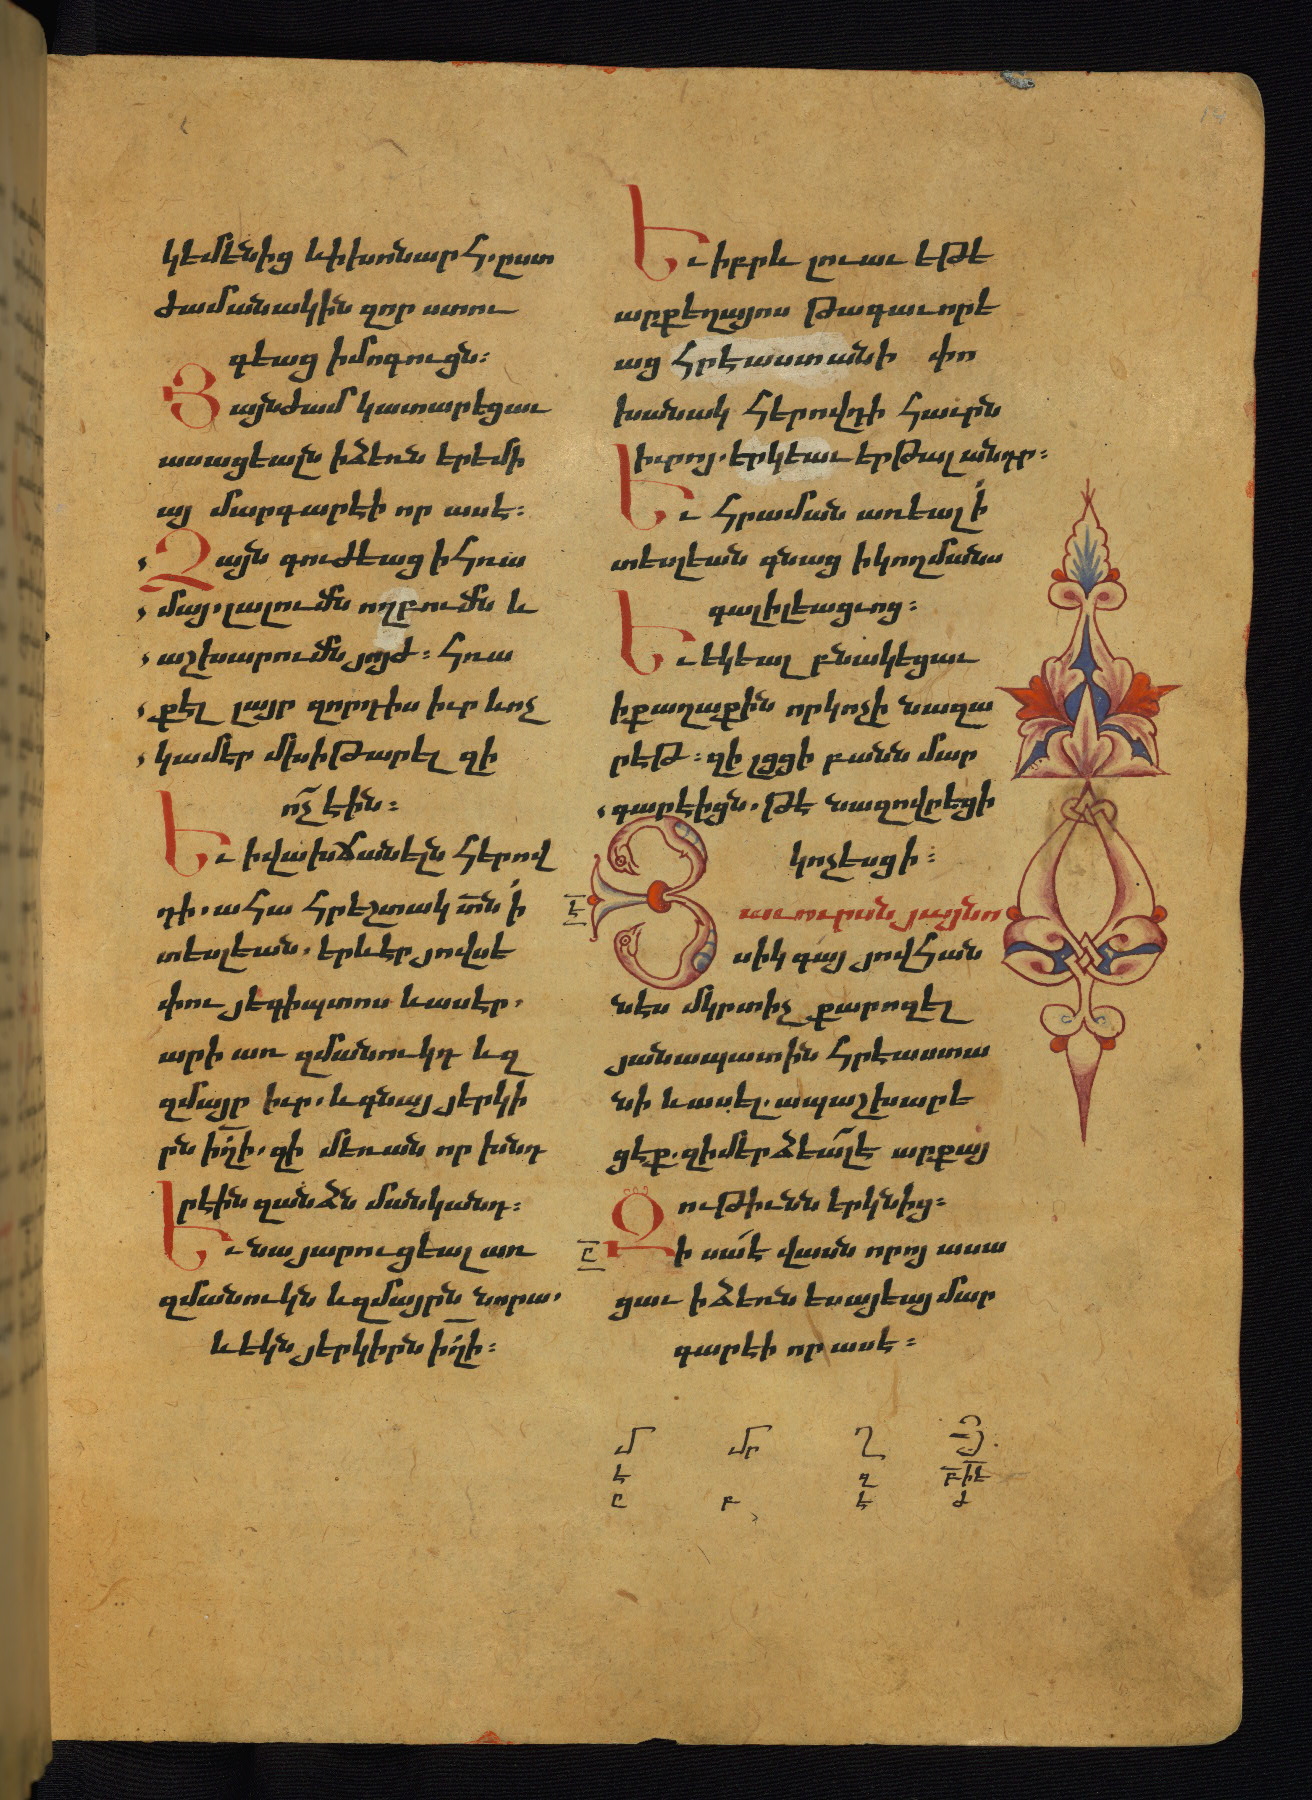 կեմէնից և ի խոնար հ. ըստ
ժամանակին զոր ստու
գեաց ի մոգուցն։
Յայնժամ կատարեցաւ
ասացեալն ի ձեռն երեմի
այ մարգարէի որ ասէ։
Ձայն գուժեաց ի հռա
մայ. լալումն ողբումն և
աշխարումն յոյժ։ հռա
քէլ լայր զորդիս իւր և ոչ
կամէր մխիթարել զի
ոչ̃ էին։
Եւ ի վախճանէլն հերով
դի. ահա հրեշտակ տ̃ն ի
տեսլեան. երևէր յովսէ
փու յեգիպտոս և ասէր.
արի առ զմանուկդ և զ
զմայր իւր. և գնայ յերկի
րն ի̃ղի. զի մեռան որ խնդ
րէին զանձն մանկանդ։
Եւ նա յարուցեալ առ
զմանուկն և զմայրն նորա.
և եկն յերկիրն ի̃ղի։
Եւ իբրև լուաւ եթէ
արքեղայոս թագաւորէ
աց հրեաստանի փո
խանակ հերովդի հաւրն
իւրոյ. երկեաւ երթալ անդր։
Եւ հրաման առեալ ի
տեսլեան գնաց ի կողմանս
գալիլեացւոց։
Եւ եկեալ բնակեցաւ
ի քաղաքին որ կոչի նազա
րէթ։ զի լցցի բանն մար
գարէիցն. թէ նազովրեցի
կոչեսցի։
է
Յաւուրսն յայնո
սիկ գայ յովհան
նէս մկրտիչ քարոզել
յանապատին հրէաստա
նի և ասել. ապաշխարե
ցէք. զի մերձեա̃լ է արքայ
ութիւնն երկնից։
ը
Զի սա̃ է վասն որոյ ասա
ցաւ ի ձեռն եսայեայ մար
գարէի որ ասէ։
մ մր ղ յ
է զ բ ի է
ը բ է ժ